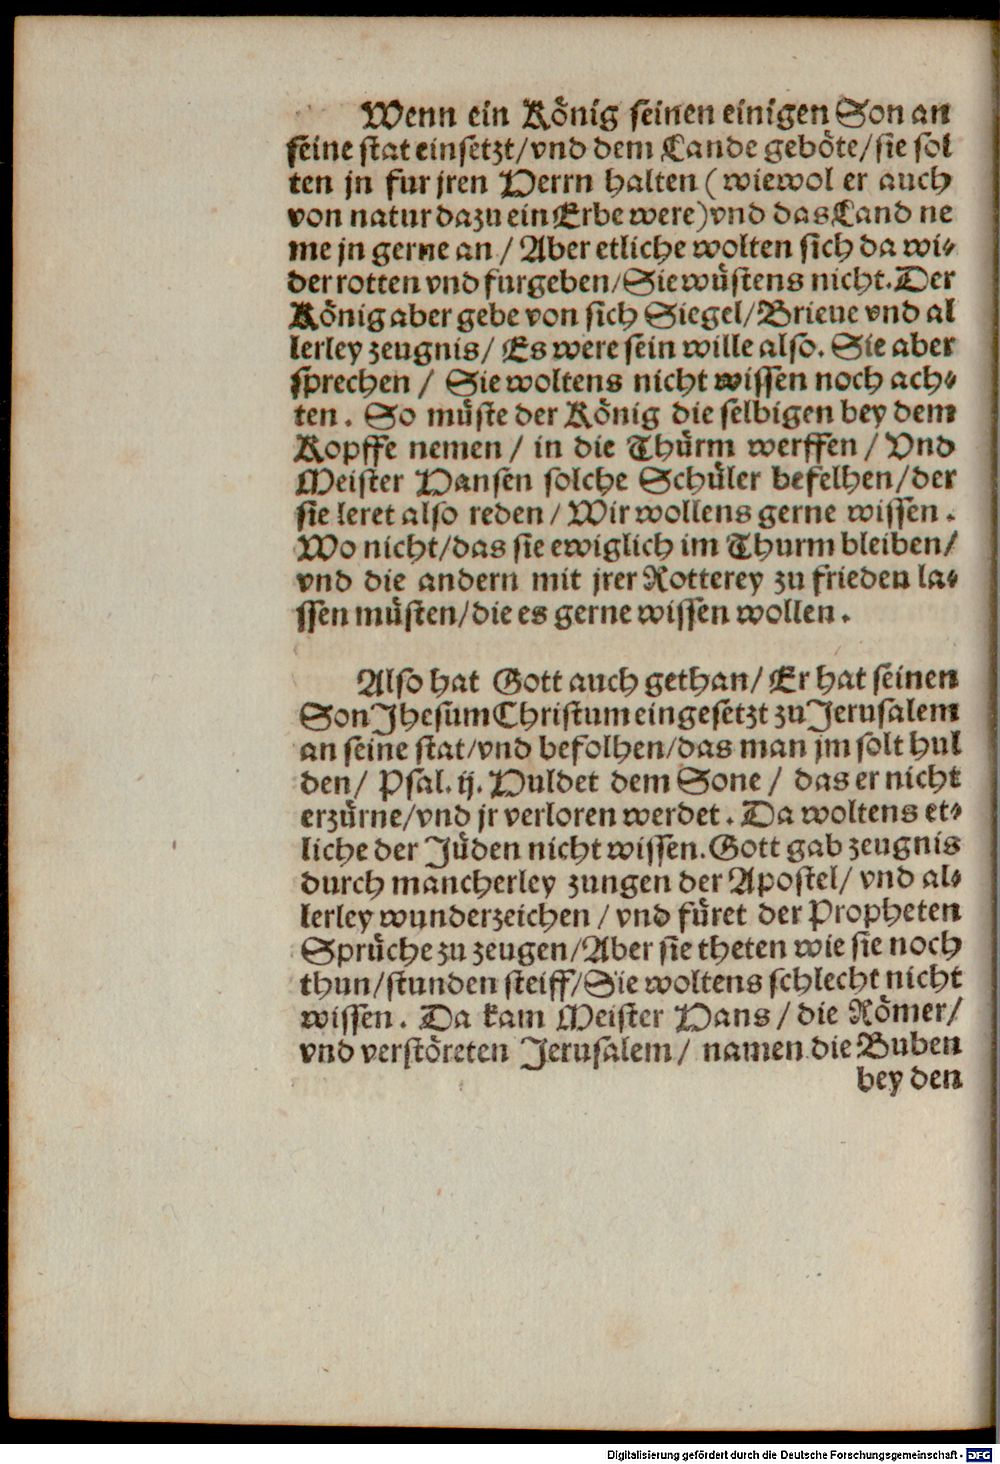 Wenn ein König seinen einigen Son an
seine stat einsetzt/vnd dem Lande geböte/sie sol
ten jn fur jren Herrn halten (wiewol er auch
von natur dazu ein Erbe were) vnd das Land ne
me jn gerne an / Aber etliche wolten sich da wi⸗
der rotten vnd furgeben/Sie wüstens nicht. Der
König aber gebe von sich Siegel/Brieue vnd al
lerley zeugnis/ Es were sein wille also. Sie aber
sprechen / Sie woltens nicht wissen noch ach⸗
ten. So müste der König die selbigen bey dem
Kopffe nemen / in die Thürm werffen / Vnd
Meister Hansen solche Schüler befelhen/der
sie leret also reden / Wir wollens gerne wissen.
Wo nicht/das sie ewiglich im Thurm bleiben/
vnd die andern mit jrer Rotterey zu frieden la⸗
ssen müsten/die es gerne wissen wollen.
Also hat Gott auch gethan/ Er hat seinen
Son Jhesum Christum eingesetzt zu Jerusalem
an seine stat/vnd befolhen/das man jm solt hul
den/ Psal. ij. Huldet dem Sone / das er nicht
erzürne/vnd jr verloren werdet. Da woltens et⸗
liche der Jüden nicht wissen. Gott gab zeugnis
durch mancherley zungen der Apostel/ vnd al⸗
lerley wunderzeichen / vnd füret der Propheten
Sprüche zu zeugen/Aber sie theten wie sie noch
thun/stunden steiff/Sie woltens schlecht nicht
wissen. Da kam Meister Hans / die Römer/
vnd verstöreten Jerusalem/ namen die Buben
bey den
Digitalisierung gefördert durch die Deutsche Forschungsgemeinschaft - DFG